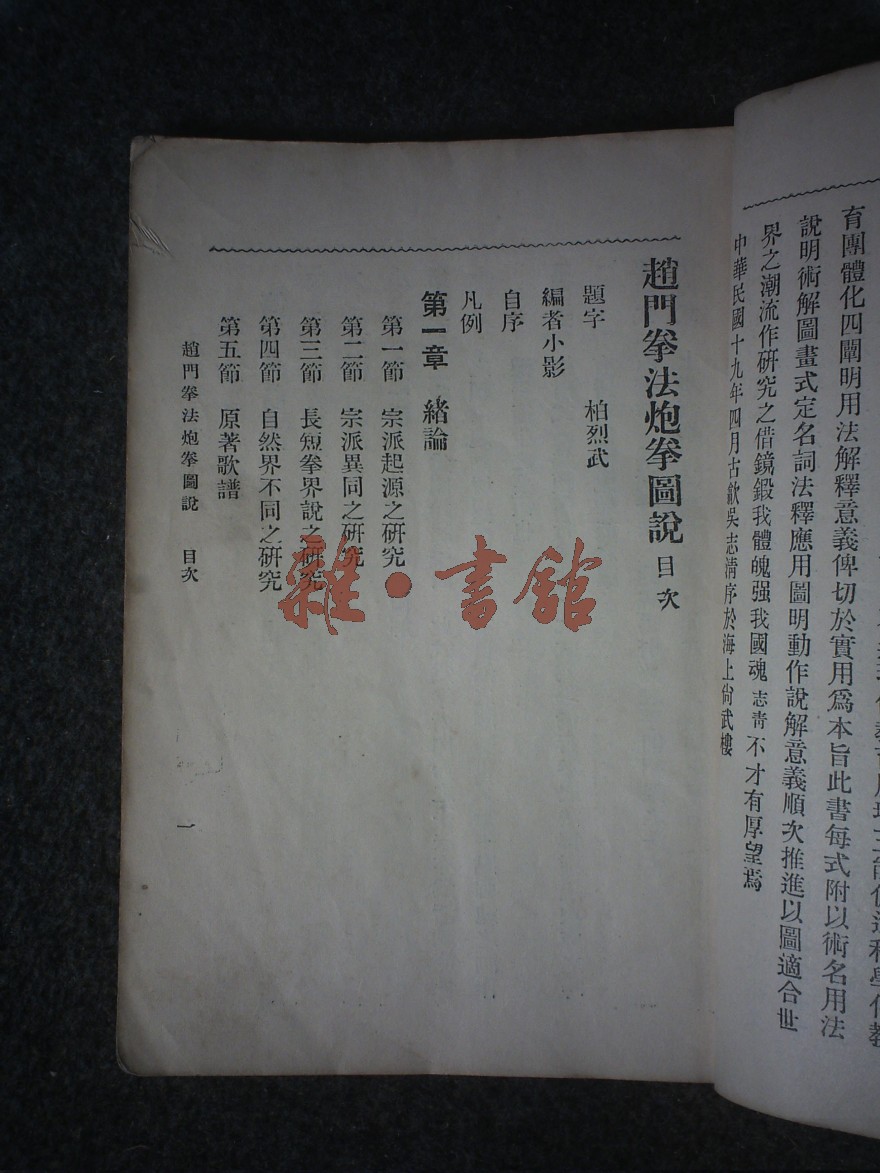 育團體化四闡明用法解釋意義俾切於實用爲本旨此書每式附以術名用法
說明術解圖畫式定名詞法釋應用圖明動作說解意義順次推進以圖適合世
界之潮流作研究之借鏡鍛我體魄强我國魂志靑不才有厚望焉
中華民國十九年四月古歙吳志淸序於海上尙武樓
趙門拳法炮拳圖說 目次
題字 柏烈武
編者小影
自序
凡例
第一章 緒論
第一節 宗派起源之硏究
第二節 宗派異同之硏究
第三節 長短拳界說之硏究
第四節 自然界不同之硏究
第五節 原著歌譜
趙門拳法炮拳圖說 目次
一
雜·書館